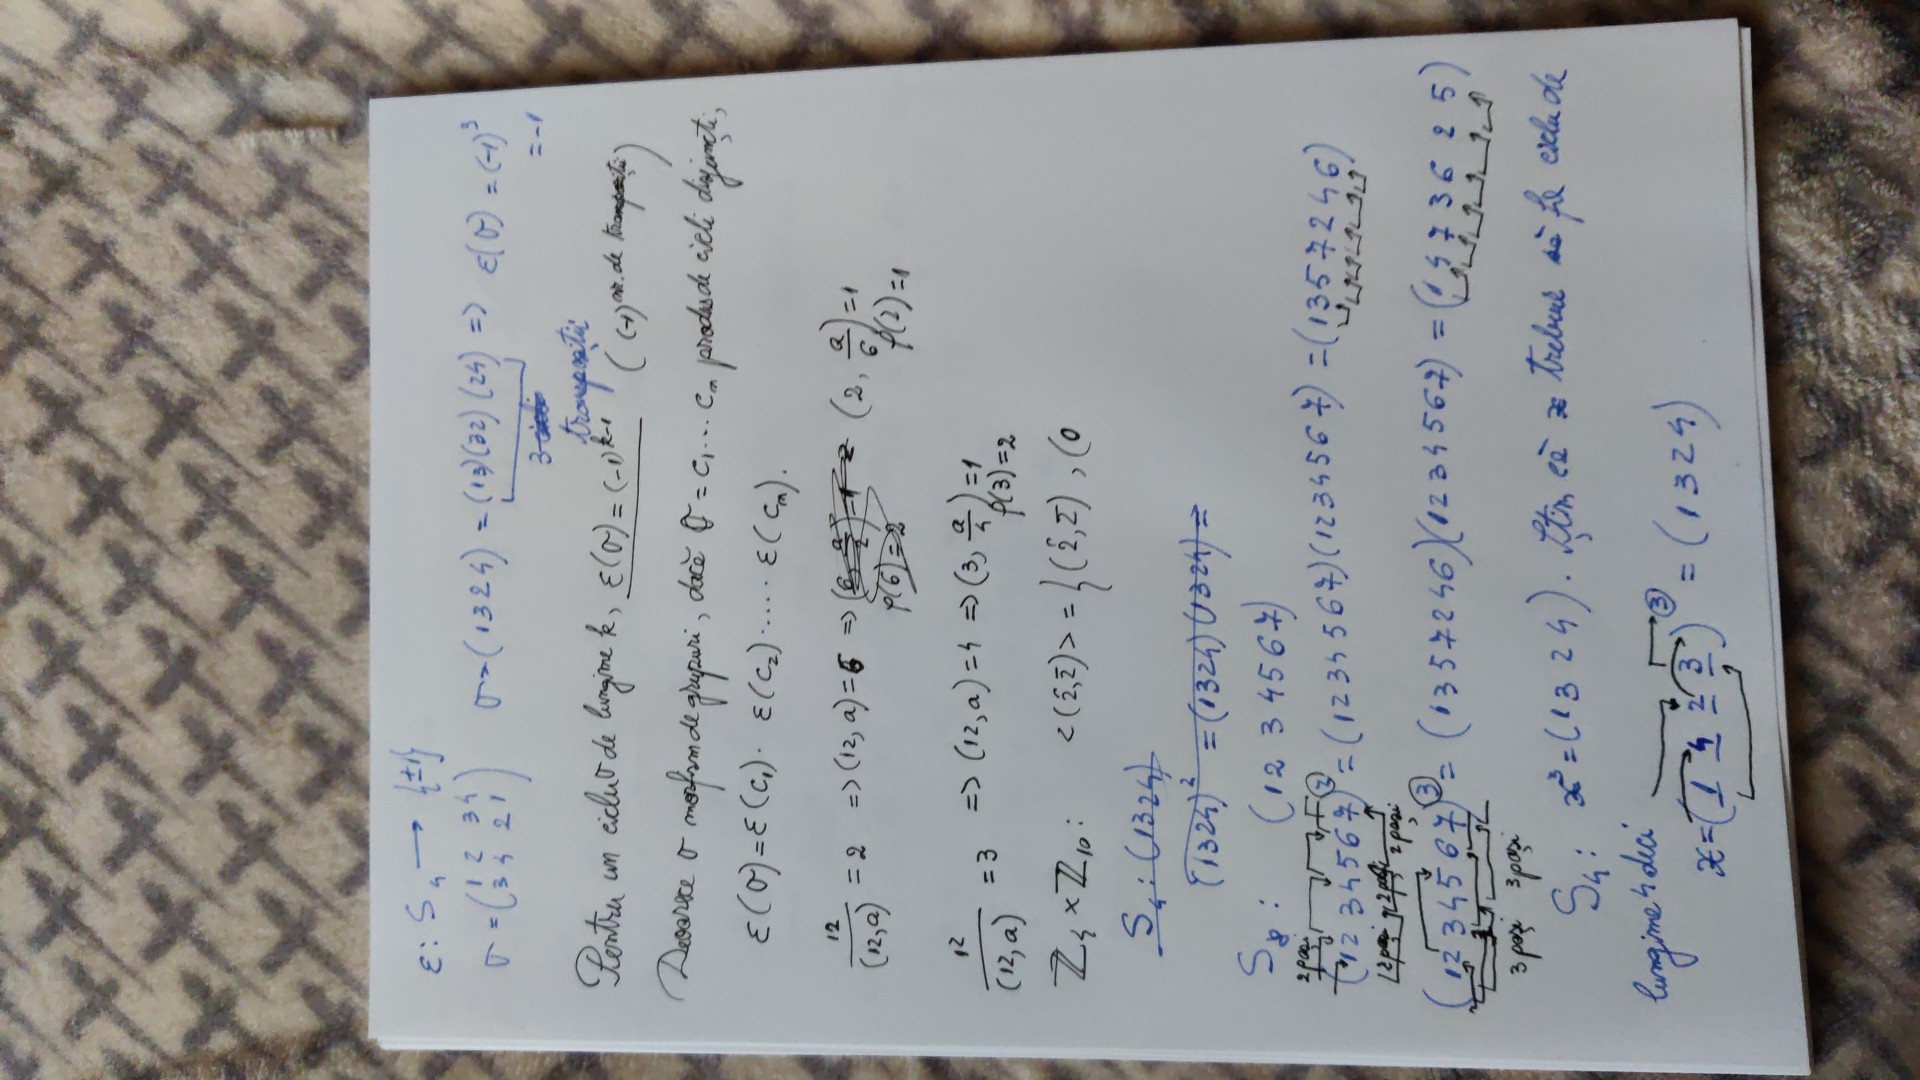 ε: S₄ → {±1}
σ = (1 2 3 4 / 3 4 2 1) σ = (1324) = (13)(32)(24) => ε(σ) = (-1)³
= -1
3 cicli
transpoziții
Pentru un ciclu σ de lungime k, ε(σ) = (-1)^(k-1) ((-1)^(nr. de transpoziții))
Deoarece σ morfism de grupuri, dacă σ = c₁ ... cₘ produs de cicli disjuncți,
ε(σ) = ε(c₁) · ε(c₂) ..... ε(cₘ).
12/(12,a) = 2 => (12,a) = 6 => (6, a/2) = 1 (2, a/6) = 1
φ(6) = 2 φ(2) = 1
12/(12,a) = 3 => (12,a) = 4 => (3, a/4) = 1
φ(3) = 2
ℤ₄ × ℤ₁₀ : <(2̂, 2̄)> = {(2̂, 2̄), (0
S₄ : (1324)
(1324)² = (1324)(1324) =
S₈ : (1234567)
2 poz
(1234567)² = (1234567)(1234567) = (1357246)
2 poz 2 poz 2 poziții
(1234567)³ = (1357246)(1234567) = (1473625)
3 poziț 3 poziț
S₄ : x³ = (1324). Știm că x trebuie să fie ciclu de
lungime 4 deci
x = (1 4 2 3)³ = (1324)